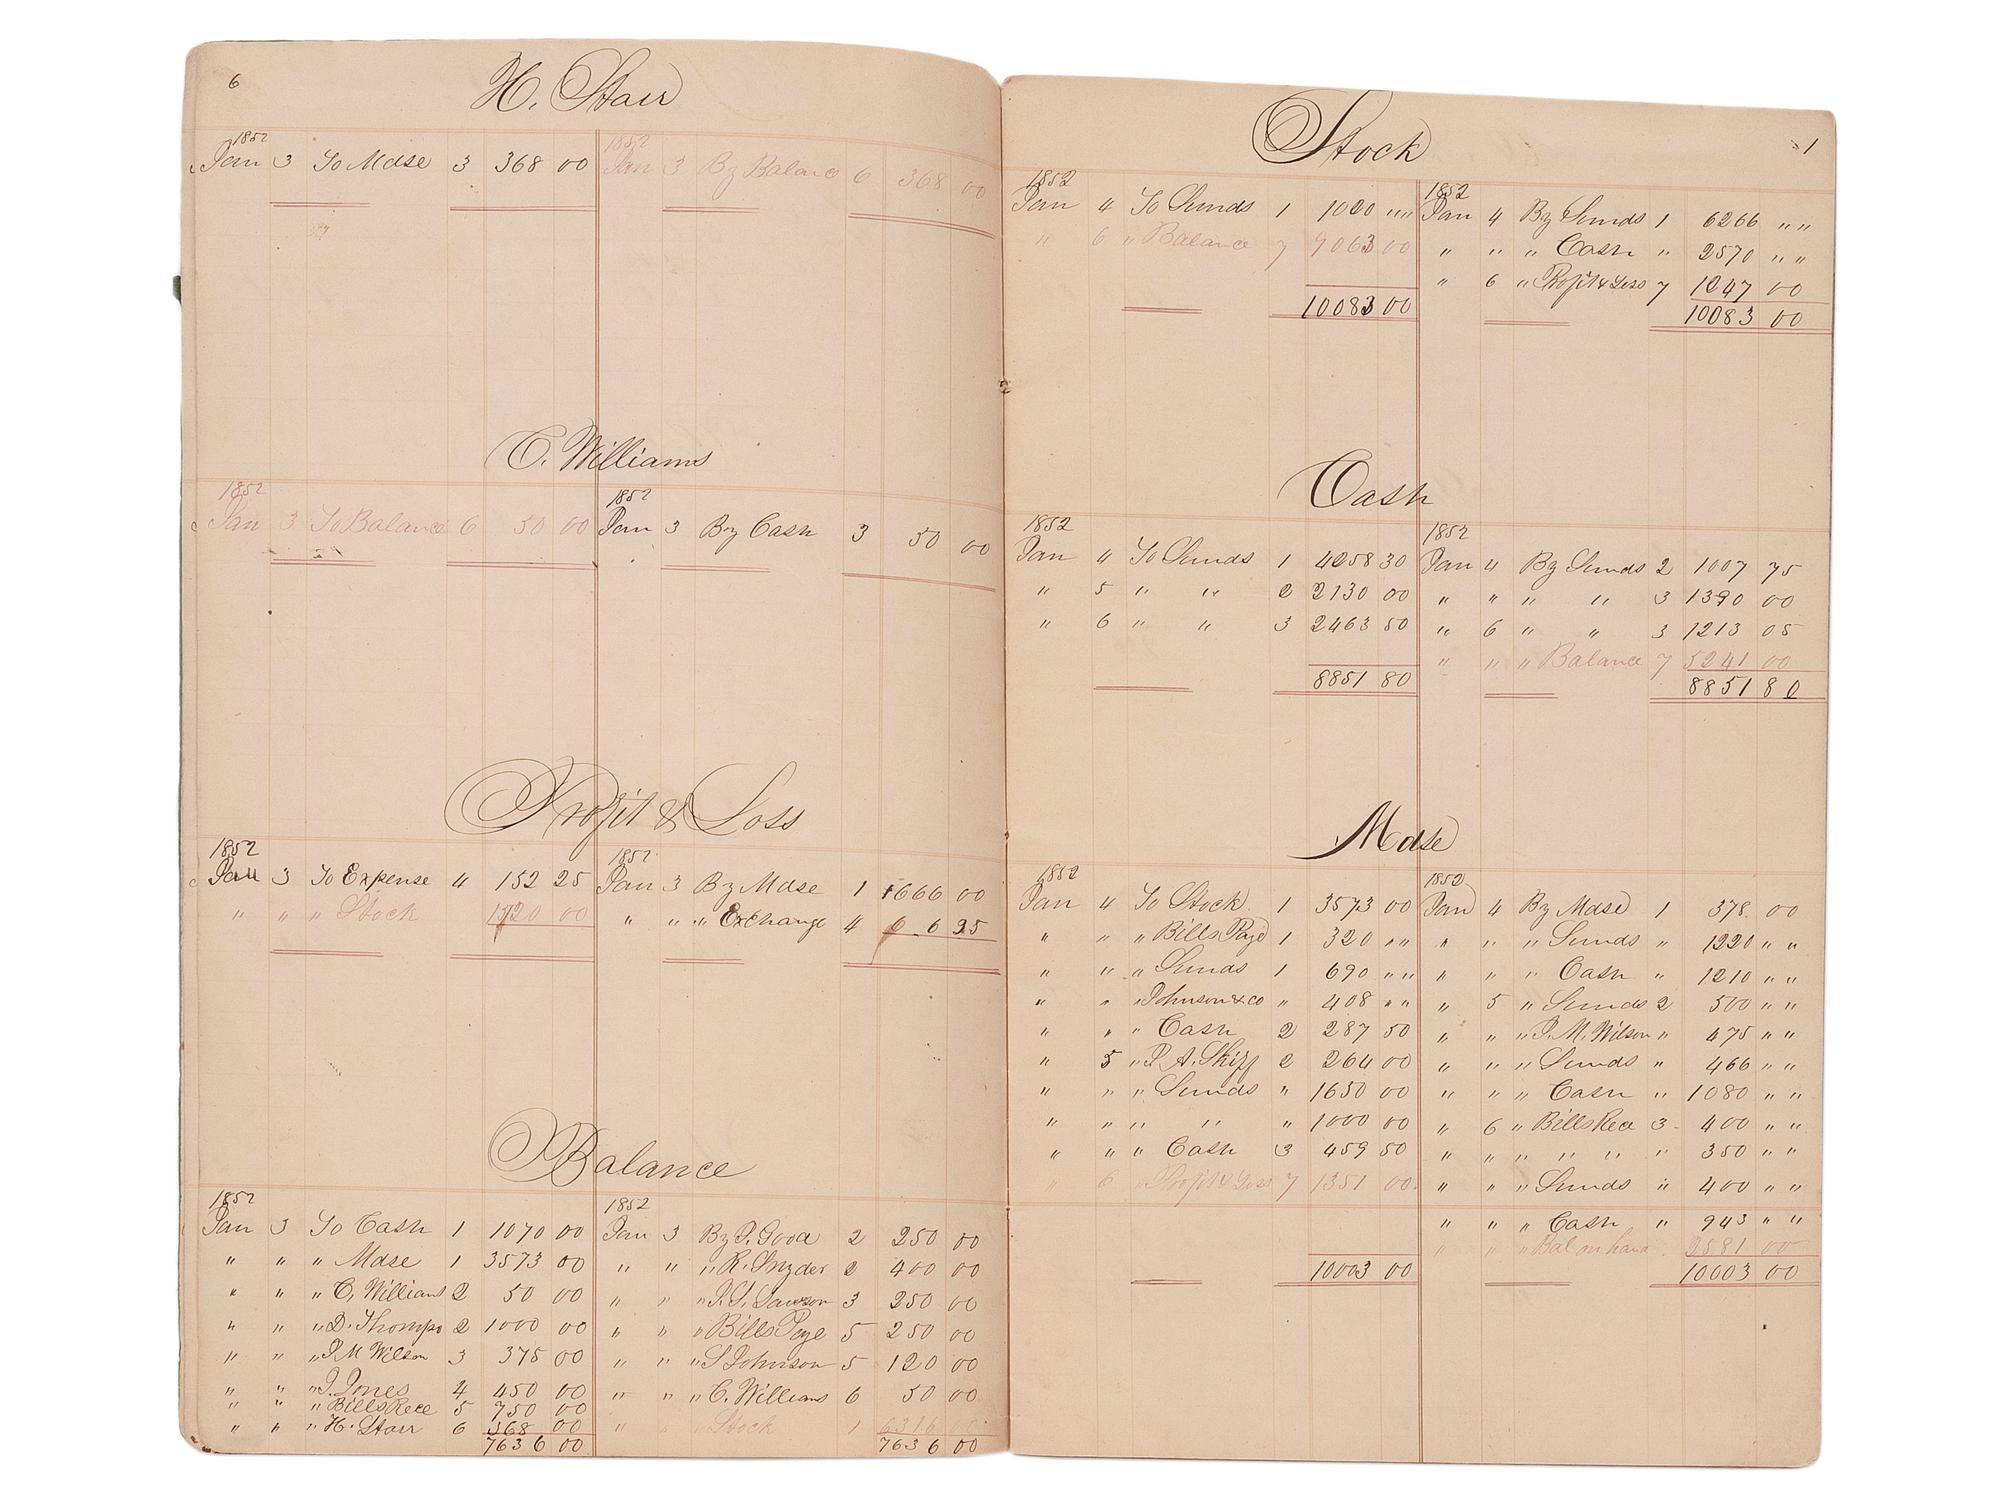 6
H. Starr
1852 1852
Jan 3 To Mdse 3 368 00 Jan 3 By Balance 6 368 00
C. Williams
1852 1852
Jan 3 To Balance 6 50 00 Jan 3 By Cash 3 50 00
Profit & Loss
1852 1852
Jan 3 To Expense 4 152 25 Jan 3 By Mdse 1 1666 00
" " " Stock 1520 00 " " " Exchange 4 6 25
Balance
1852 1852
Jan 3 To Cash 1 1070 00 Jan 3 By J. Good 2 250 00
" " " Mdse 1 3573 00 " " " R. Snyder 2 400 00
" " " C. Williams 2 50 00 " " " J. S. Lawson 3 250 00
" " " D. Thompo 2 1000 00 " " " Bills Paye 5 250 00
" " " J M Wilson 3 375 00 " " " S Johnson 5 120 00
" " " J. Jones 4 450 00 " " " C. Williams 6 50 00
" " " Bills Rece 5 750 00
" " " H. Starr 6 368 00 " " " Stock 1 6316 00
7636 00 7636 00
Stock
1
1852 1852
Jan 4 To Sunds 1 1020 "" Jan 4 By Sunds 1 6266 " "
" 6 " Balance 7 9063 00 " " " Cash " 2570 " "
" 6 " Profit & Loss 7 1247 00
10083 00 10083 00
Cash
1852 1852
Jan 4 To Sunds 1 4258 30 Jan 4 By Sunds 2 1007 75
" 5 " " 2 2130 00 " " " " 3 1390 00
" 6 " " 3 2463 50 " 6 " " 3 1213 05
" " " Balance 7 5241 00
8851 80 8851 80
Mdse
1852 1852
Jan 4 To Stock 1 3573 00 Jan 4 By Mdse 1 378 00
" " " Bills Paye 1 320 " " " " " Sunds " 1220 " "
" " " Sunds 1 690 " " " " " Cash " 1210 " "
" " " Johnson & co " 408 " " " 5 " Sunds 2 500 " "
" " " Cash 2 287 50 " " " J. M. Wilson " 475 " "
" 5 " P. A. Skiff 2 264 00 " " " Sunds " 466 " "
" " " Sunds " 1650 00 " " " Cash " 1080 " "
" " " " " 1000 00 " 6 " Bills Rece 3 400 " "
" " " Cash 3 459 50 " " " " " " 350 " "
" 6 " Profit & Loss 7 1351 00 " " " Sunds " 400 " "
" " " Cash " 943 " "
" " " Bal on hand 2581 00
10003 00 10003 00